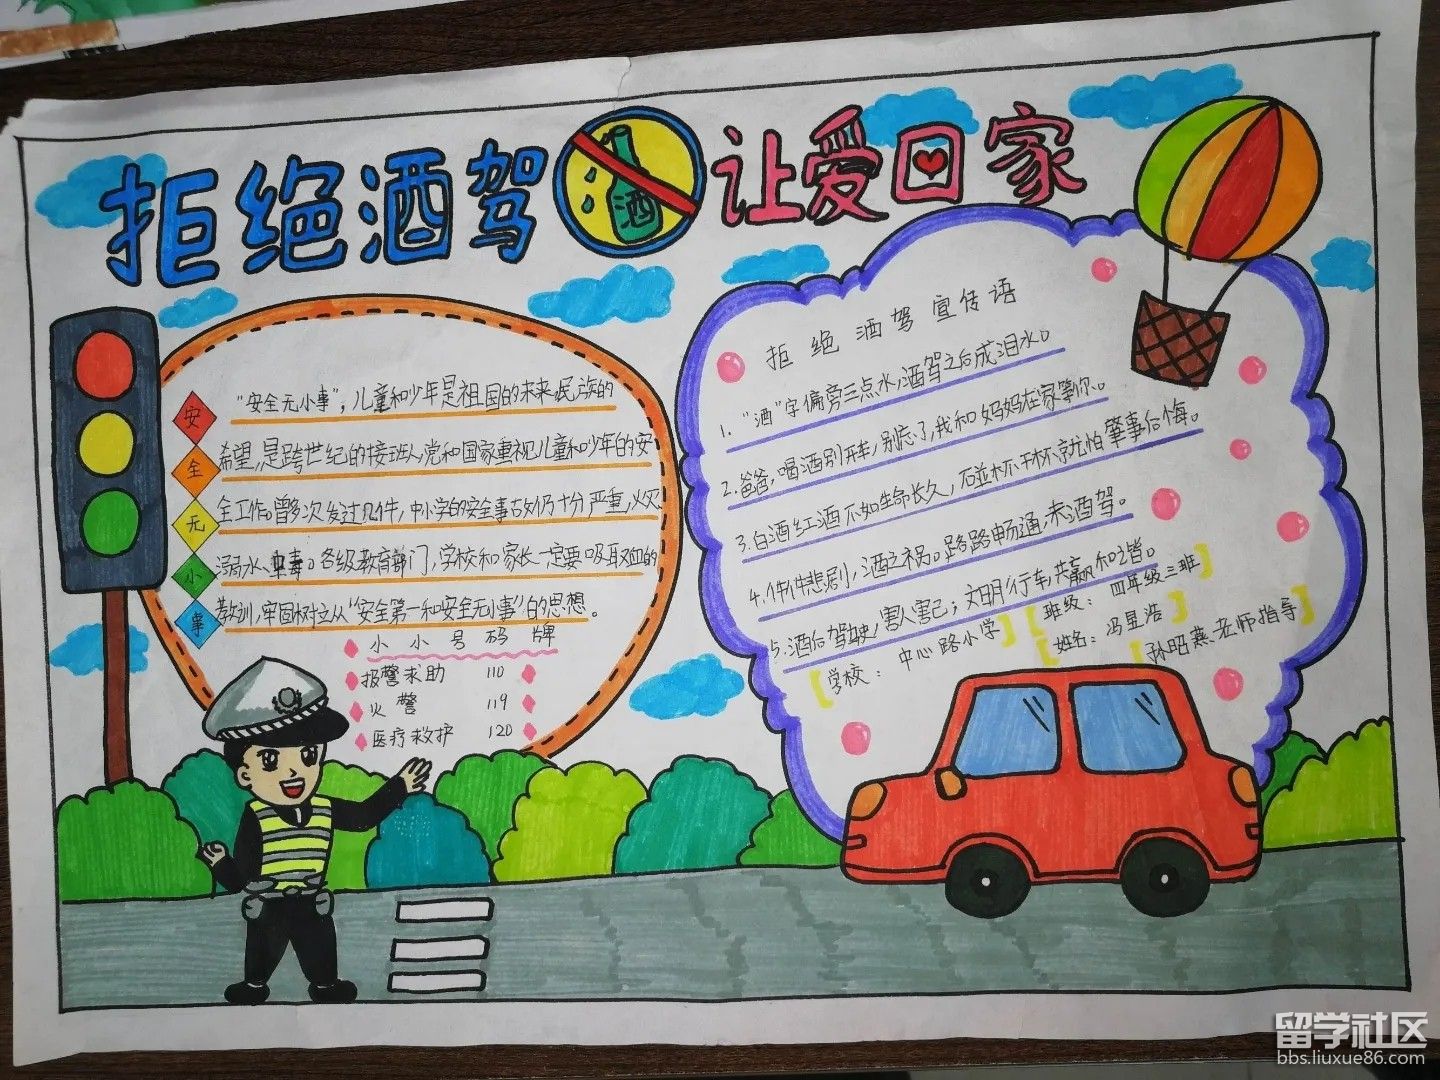 拒绝酒驾
酒
让爱回家
安
全
无
小
事
"安全无小事",儿童和少年是祖国的未来民族的
希望,是跨世纪的接班人,党和国家重视儿童和少年的安
全工作。曾多次发过几件,中小学的安全事故仍十分严重,火灾
溺水、中毒。各级教育部门,学校和家长一定要吸取血的
教训,牢固树立从"安全第一和安全无小事"的思想。
小小号码牌
报警求助 110
火警 119
医疗救护 120
拒绝酒驾宣传语
1. "酒"字偏旁三点水,酒驾之后成泪水。
2.爸爸,喝酒别开车,别忘了,我和妈妈在家等你。
3.白酒红酒不如生命长久,碰杯干杯就怕肇事后悔。
4.件件悲剧,酒之祸。路路畅通,未酒驾。
5.酒后驾驶,害人害己;文明行车,共赢和谐。
【学校:中心路小学】【班级:四年级三班】
【姓名:冯昱浩】
【孙昭燕老师指导】
留学社区
bbs.liuxue86.com